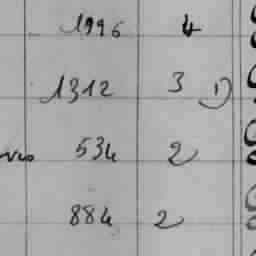 1996 4
1312 3 1)
534 2
884 2